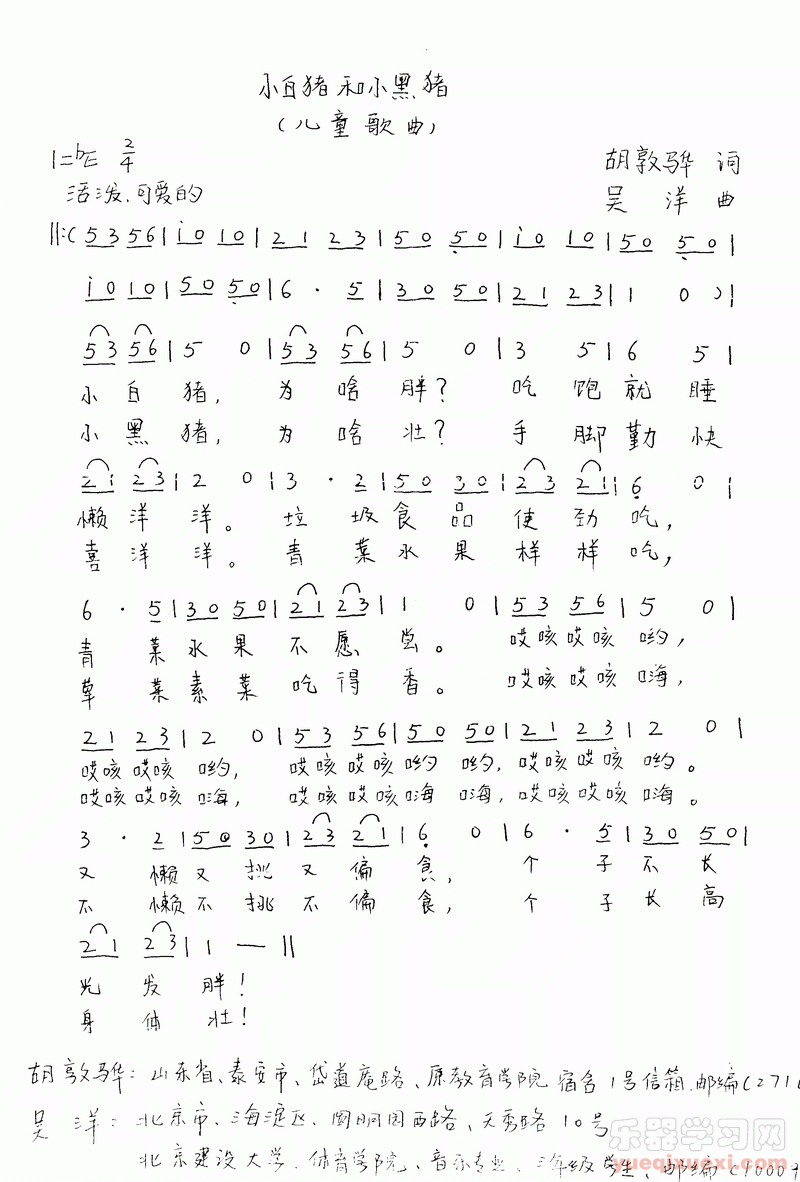 小白猪和小黑猪
（儿童歌曲）
1=bE 2/4
胡敦骅 词
活泼、可爱的
吴 洋 曲
‖:( 5 3 5 6 | i 0 1 0 | 2 1 2 3 | 5 0 5 0 | i 0 1 0 | 5 0 5 0 |
i 0 1 0 | 5 0 5 0 | 6 · 5 | 3 0 5 0 | 2 1 2 3 | 1 0 ) |
5 3 5 6 | 5 0 | 5 3 5 6 | 5 0 | 3 5 | 6 5 |
小白猪，为啥胖？吃饱就睡
小黑猪，为啥壮？手脚勤快
2 1 2 3 | 2 0 | 3 · 2 | 5 0 3 0 | 2 3 2 1 | 6 0 |
懒洋洋。垃圾食品使劲吃，
喜洋洋。青菜水果样样吃，
6 · 5 | 3 0 5 0 | 2 1 2 3 | 1 0 | 5 3 5 6 | 5 0 |
青菜水果不愿尝。哎咳哎咳哟，
草菜素菜吃得香。哎咳哎咳嗨，
2 1 2 3 | 2 0 | 5 3 5 6 | 5 0 5 0 | 2 1 2 3 | 2 0 |
哎咳哎咳哟，哎咳哎咳哟哟，哎咳哎咳哟。
哎咳哎咳嗨，哎咳哎咳嗨嗨，哎咳哎咳嗨。
3 · 2 | 5 0 3 0 | 2 3 2 1 | 6 0 | 6 · 5 | 3 0 5 0 |
又懒又挑又偏食，个子不长
不懒不挑不偏食，个子长高
2 1 2 3 | 1 — ‖
光发胖！
身体壮！
胡敦骅：山东省、泰安市、岱道庵路、原教育学院宿舍1号信箱.邮编(271
吴 洋：北京市、海淀区、圆明园西路、天秀路10号
北京建设大学、体育学院、音乐专业、年级学生、邮编(1000
乐器学习网
yueqixuexi.com